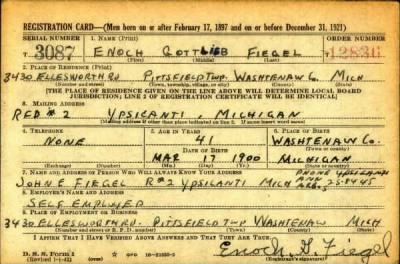 REGISTRATION CARD—(Men born on or after February 17, 1897 and on or before December 31, 1921)
SERIAL NUMBER 1. NAME (Print) ORDER NUMBER
T 3087 ENOCH GOTTLIEB FIEGEL 12836
(First) (Middle) (Last)
2. PLACE OF RESIDENCE (Print)
3430 ELLESWORTH RD PITTSFIELD TWP WASHTENAW CO. MICH
(Number and street) (Town, township, village, or city) (County) (State)
[THE PLACE OF RESIDENCE GIVEN ON THE LINE ABOVE WILL DETERMINE LOCAL BOARD
JURISDICTION; LINE 2 OF REGISTRATION CERTIFICATE WILL BE IDENTICAL]
3. MAILING ADDRESS
RFD #2 YPSILANTI MICHIGAN
[Mailing address if other than place indicated on line 2. If same insert word same]
4. TELEPHONE 5. AGE IN YEARS 6. PLACE OF BIRTH
NONE 41 WASHTENAW CO.
DATE OF BIRTH (Town or county)
MAR 17 1900 MICHIGAN
(Exchange) (Number) (Mo.) (Day) (Yr.) (State or country)
7. NAME AND ADDRESS OF PERSON WHO WILL ALWAYS KNOW YOUR ADDRESS PHONE YPSILANTI
JOHN E FIEGEL R#2 YPSILANTI MICH 25-8445
8. EMPLOYER'S NAME AND ADDRESS
SELF EMPLOYED
9. PLACE OF EMPLOYMENT OR BUSINESS
3430 ELLESWORTH RD. PITTSFIELD TWP WASHTENAW MICH.
(Number and street or R. F. D. number) (Town) (County) (State)
I AFFIRM THAT I HAVE VERIFIED ABOVE ANSWERS AND THAT THEY ARE TRUE.
D. S. S. Form 1
(Revised 1-1-42) (over) Enoch G. Fiegel
(Registrant's signature)